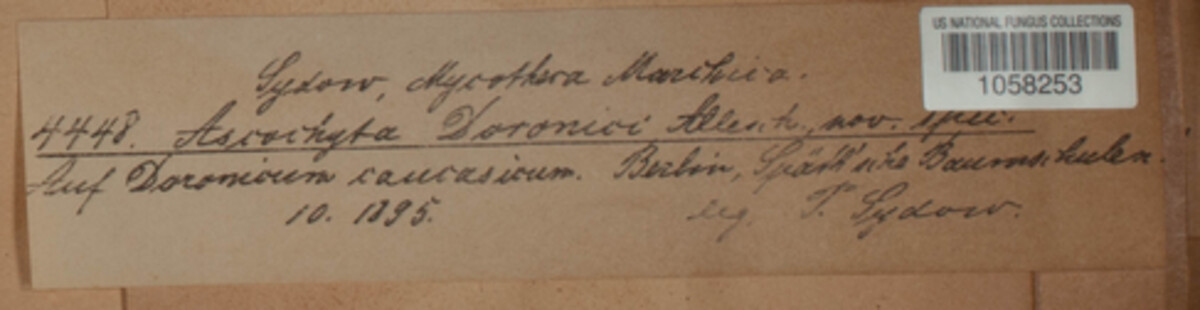 US NATIONAL FUNGUS COLLECTIONS
1058253
Sydow, Mycotheca Marchica.
4448. Ascochyta Doronici Allesch., nov. spec.
Auf Doronicum caucasicum. Berlin, Späth'sche Baumschulen.
10. 1895. leg. P. Sydow.